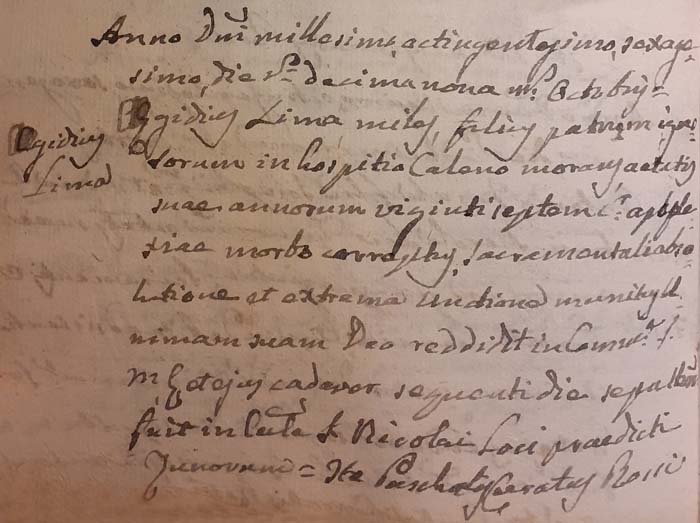 Anno Dñi millesimo, actingentesimo, sexage-
simo, die vº decimanona ms Octobris =
Egidius Lima miles, filius patrum igno-
Egidius
Lima
torum in hospitio Caleno morans aetatis
suae annorum viginti septem Cr. apople-
xiae morbo correptus, sacramentali abso-
lutione et extrema Unctione munitus A-
nimam suam Deo reddidit in Comne S.
M. E. et ejus cadaver sequenti die sepultum
fuit in Eccla S. Nicolai Loci praedicti
= Ita Paschalis Curatus Rossi